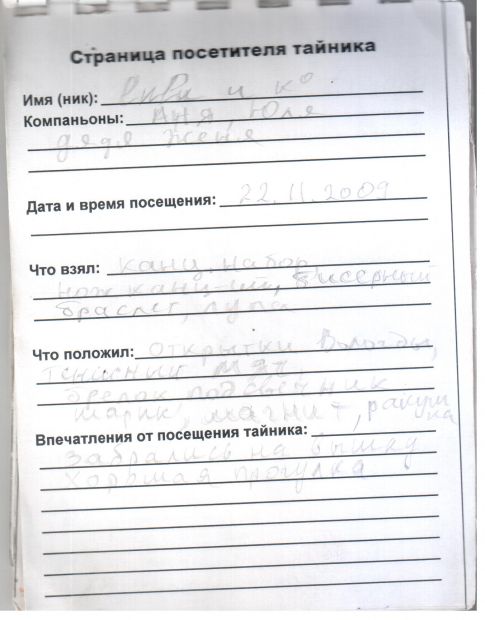 Страница посетителя тайника
Имя (ник): и к°
Компаньоны: Аня, Юля
дядя Женя
Дата и время посещения: 22.11.2009
Что взял: канц. набор,
нож канц-ий, бисерный
браслет, лупа
Что положил: открытки Вологды,
подсвечник
шарик, магнит, ракуш
ка
Впечатления от посещения тайника:
Забрались на вышку
Хорошая прогулка